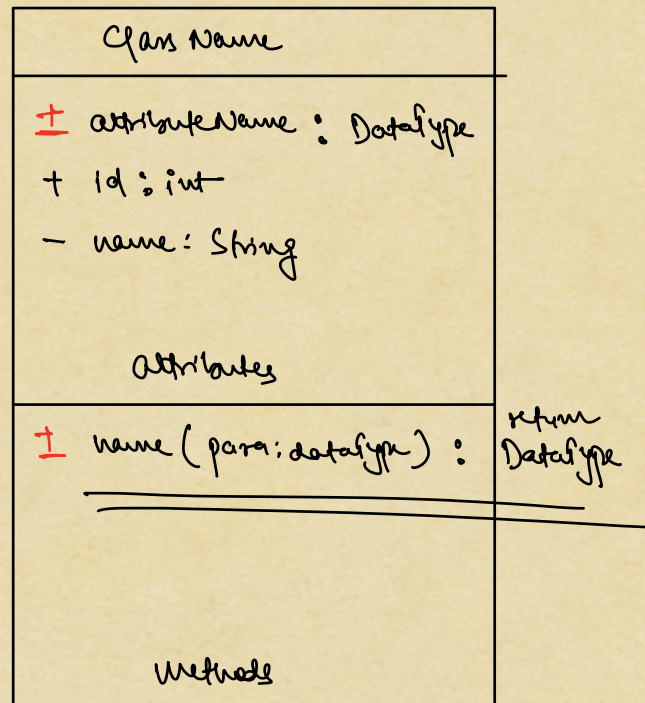 Class Name
± attributeName : DataType
+ id : int
- name : String
attributes
± name ( para : dataType ) : return DataType
Methods